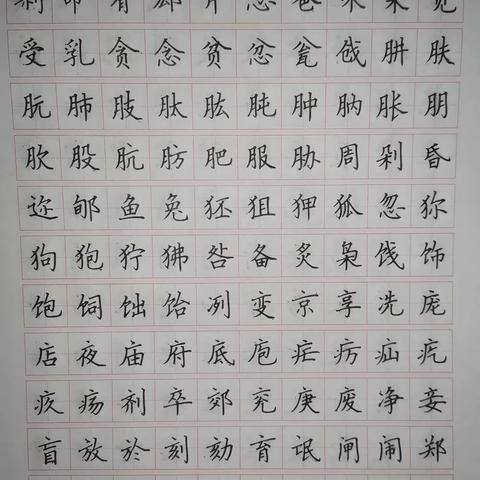 受乳贪念贫忿瓮戗肼肤
朊肺肢肽肱肫肿肭胀朋
肷股肮肪肥服胁周剁昏
迩郇鱼兔狉狙狎狐忽狝
狗狍狞狒咎备炙枭饯饰
饱饲饳饴冽变京享冼庞
店夜庙府底庖疟疠疝疙
疚疡剂卒郊兖庚废净妾
盲放於刻劾育氓闸闹郑